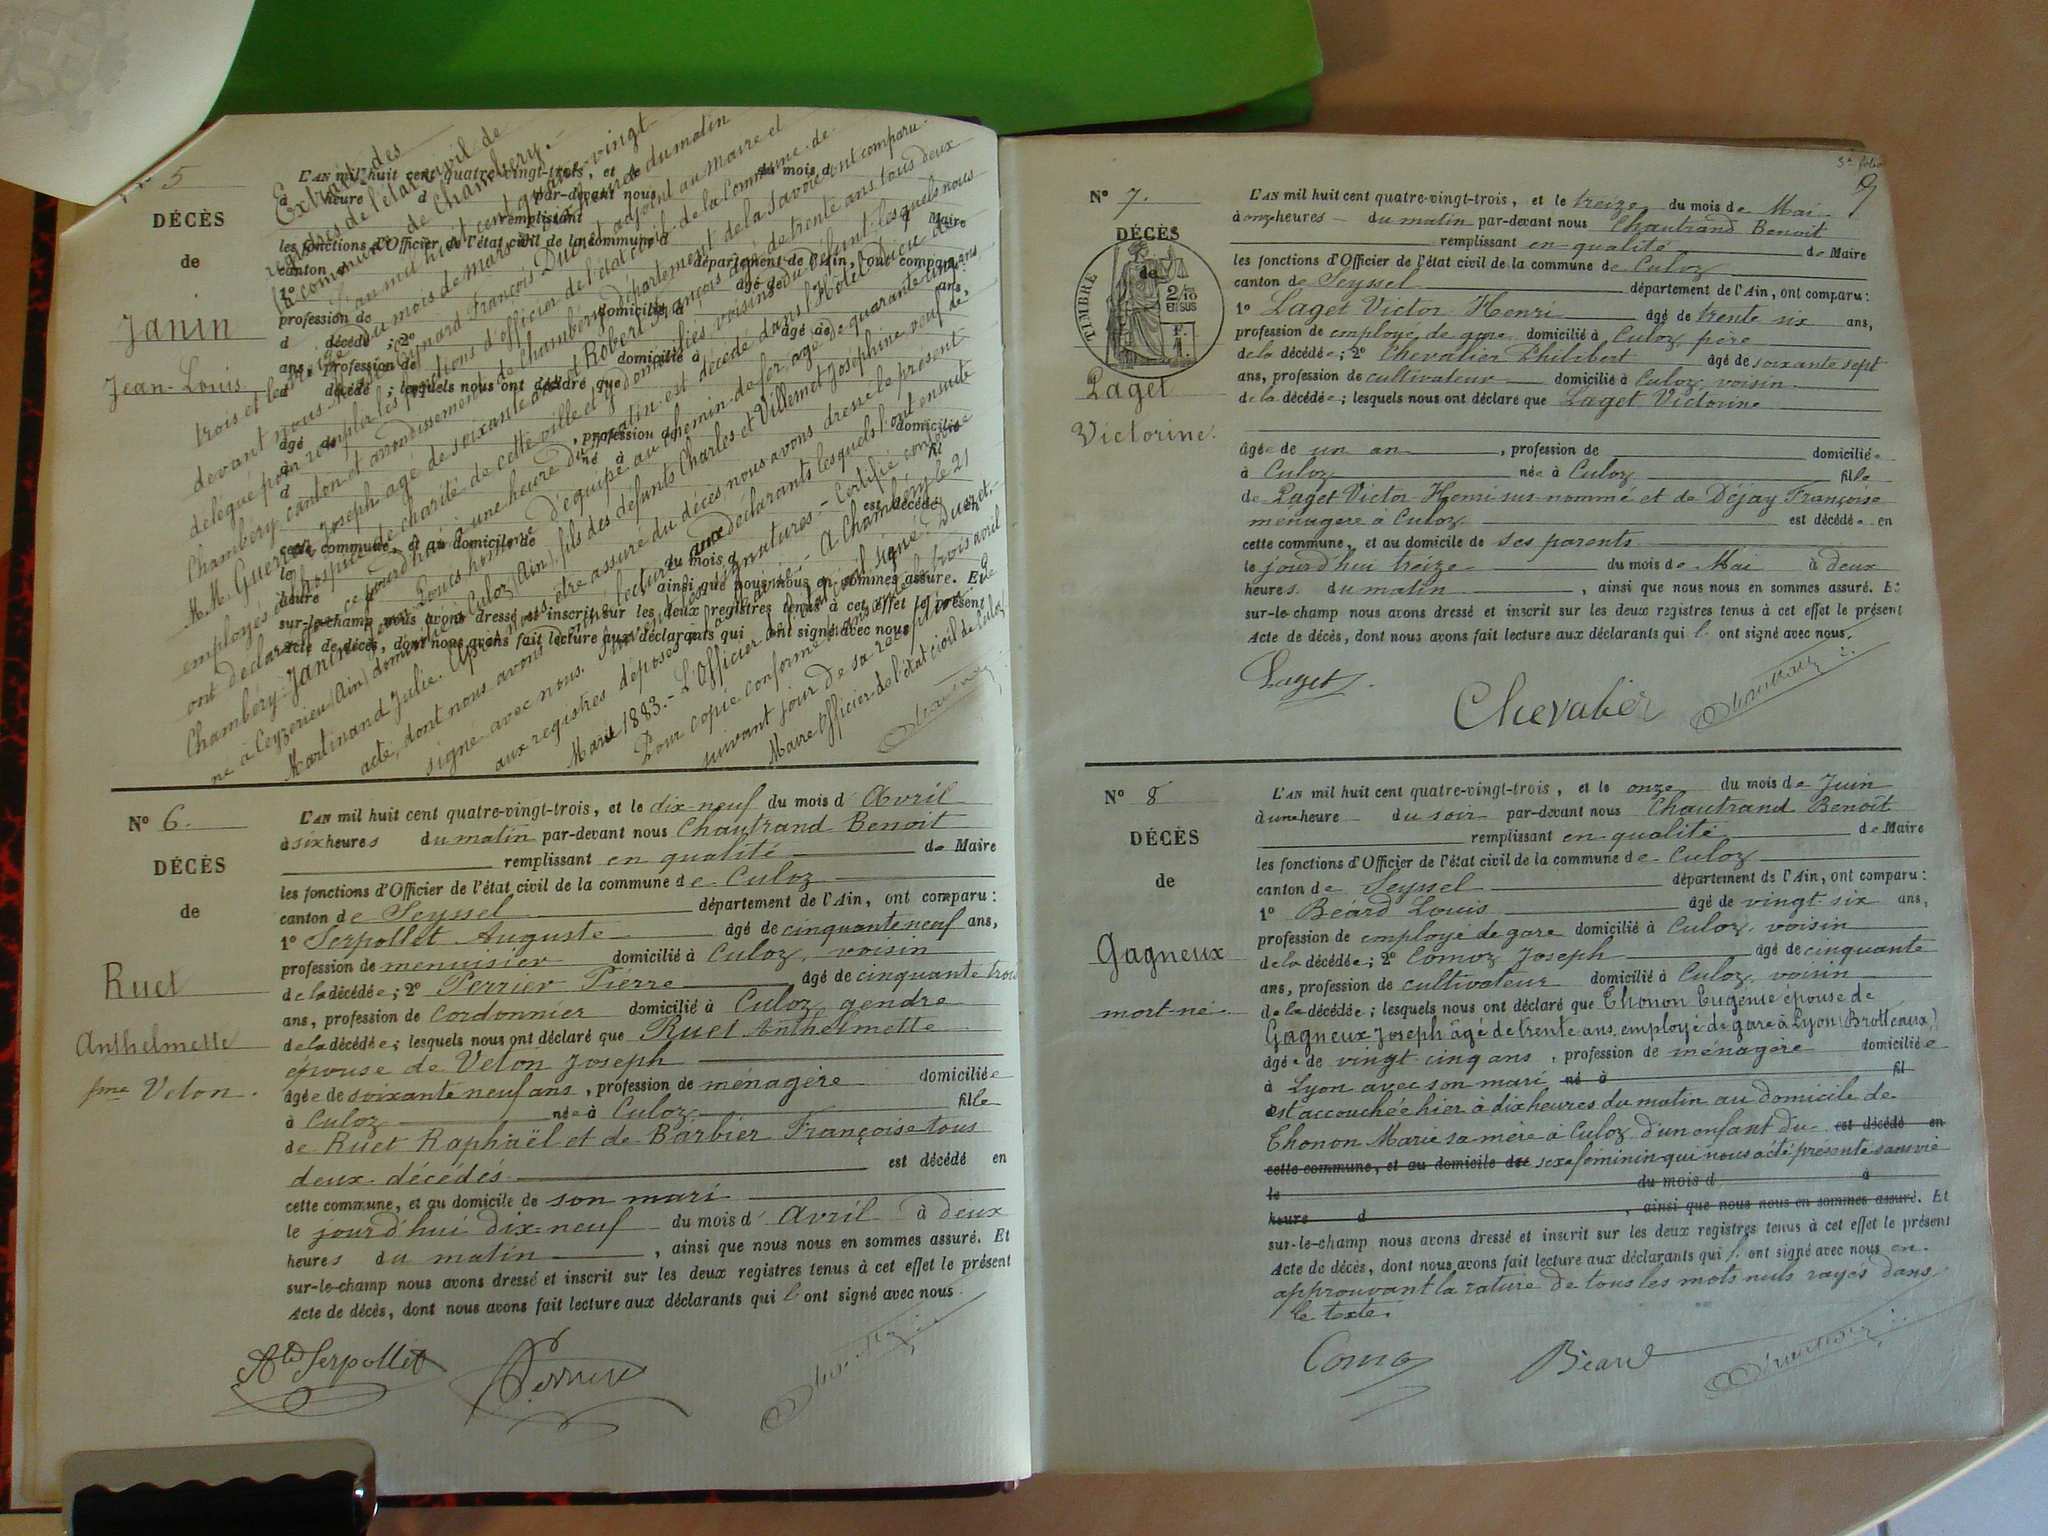 N° 5
DÉCÈS
de
Janin
Jean-Louis
L'AN mil huit cent quatre-vingt-trois, et le
du mois d
à heure d par-devant nous
remplissant
d Maire
les fonctions d'Officier de l'état civil de la commune d
canton d département de l'Ain, ont comparu
1° âgé de ans,
profession de domicilié à
d décédé ; 2° âgé de
ans, profession de domicilié à
d décédé ; lesquels nous ont déclaré que
âgé de , profession de domicilié
à né à fil
d
est décédé en
cette commune, et au domicile de
le du mois d à
heure d ainsi que nous nous en sommes assuré. Et
sur-le-champ nous avons dressé et inscrit sur les deux registres tenus à cet effet le présent
Acte de décès, dont nous avons fait lecture aux déclarants qui ont signé avec nous
Extrait des
registres de l'état civil de
la commune de Chambéry.
L'an mil huit cent quatre-vingt
trois et le du mois de mars à heure du matin
devant nous François Ducret adjoint au maire et
délégué pour remplir les fonctions d'officier de l'état civil de la Commune de
Chambéry, canton et arrondissement de Chambéry département de la Savoie ont comparu
M.M. Guerraz Joseph âgé de soixante ans et Robert François âgé de trente ans tous deux
employés à l'hospice de charité de cette ville et y domiciliés voisins du défunt lesquels nous
ont déclaré que ce jourd'hui à une heure du matin est décédé dans l'Hôtel Dieu de
Chambéry Janin Jean Louis homme d'équipe au chemin de fer âgé de quarante cinq ans
né à Ceyzerieu (Ain) domicilié à Culoz (Ain) fils des défunts Charles et Villemot Josephine veuf de
Martinand Julie. Après nous être assuré du décès nous avons dressé le présent
acte, dont nous avons donné lecture aux déclarants lesquels l'ont ensuite
signé avec nous. Suivent les signatures. Certifié conforme
aux registres déposés à la mairie. A Chambéry le 21
Mars 1883. L'Officier de l'état civil signé: Ducret.
Pour copie conforme transcrite le trois avril
suivant jour de sa réception par le
Maire Officier de l'état civil de Culoz.
N° 6.
DÉCÈS
de
Ruet
Anthelmette
fme Veton.
L'AN mil huit cent quatre-vingt-trois, et le dix neuf du mois d'Avril
à six heures du matin par-devant nous Chautrand Benoit
remplissant en qualité de Maire
les fonctions d'Officier de l'état civil de la commune de Culoz
canton de Seyssel département de l'Ain, ont comparu :
1° Serpollet Auguste âgé de cinquante neuf ans,
profession de menuisier domicilié à Culoz, voisin
de la décédée; 2° Perrier Pierre âgé de cinquante trois
ans, profession de Cordonnier domicilié à Culoz gendre
de la décédée; lesquels nous ont déclaré que Ruet Anthelmette
épouse de Veton Joseph
âgée de soixante neuf ans, profession de ménagère domiciliée
à Culoz née à Culoz fille
de Ruet Raphaël et de Barbier Françoise tous
deux décédés est décédé en
cette commune, et au domicile de son mari
le jourd'hui dix-neuf du mois d'Avril à deux
heures du matin , ainsi que nous nous en sommes assuré. Et
sur-le-champ nous avons dressé et inscrit sur les deux registres tenus à cet effet le présent
Acte de décès, dont nous avons fait lecture aux déclarants qui l'ont signé avec nous.
Ate Serpollet Perrier Chautrand
3e folio
9
N° 7.
DÉCÈS
de
TIMBRE
2/10
EN SUS
Laget
Victorine.
L'AN mil huit cent quatre-vingt-trois, et le treize du mois de Mai
à onze heures du matin par-devant nous Chautrand Benoit
remplissant en qualité de Maire
les fonctions d'Officier de l'état civil de la commune de Culoz
canton de Seyssel département de l'Ain, ont comparu :
1° Laget Victor Henri âgé de trente six ans,
profession de employé de gare domicilié à Culoz père
de la décédée; 2° Chevalier Philibert âgé de soixante sept
ans, profession de cultivateur domicilié à Culoz voisin
de la décédée; lesquels nous ont déclaré que Laget Victorine
âgée de un an , profession de domiciliée
à Culoz née à Culoz fille
de Laget Victor Henri sus-nommé et de Déjay Françoise
ménagère à Culoz est décédée en
cette commune, et au domicile de ses parents
le jourd'hui treize du mois de Mai à deux
heures du matin , ainsi que nous nous en sommes assuré. Et
sur-le-champ nous avons dressé et inscrit sur les deux registres tenus à cet effet le présent
Acte de décès, dont nous avons fait lecture aux déclarants qui l'ont signé avec nous.
Laget Chevalier Chautrand
N° 8
DÉCÈS
de
Gagneux
mort-né
L'AN mil huit cent quatre-vingt-trois, et le onze du mois de Juin
à une heure du soir par-devant nous Chautrand Benoît
remplissant en qualité de Maire
les fonctions d'Officier de l'état civil de la commune de Culoz
canton de Seyssel département de l'Ain, ont comparu :
1° Béard Louis âgé de vingt six ans,
profession de employé de gare domicilié à Culoz, voisin
de la décédée; 2° Comoz Joseph âgé de cinquante
ans, profession de cultivateur domicilié à Culoz, voisin
de la décédée; lesquels nous ont déclaré que Thonon Eugénie épouse de
Gagneux Joseph âgé de trente ans employé de gare à Lyon (Brotteaux)
âgée de vingt cinq ans , profession de ménagère domiciliée
à Lyon avec son mari né à fil
est accouchée hier à dix heures du matin au domicile de
Thonon Marie sa mère à Culoz d'un enfant du est décédé en
cette commune, et au domicile de sexe féminin qui nous a été présenté sans vie
le du mois d à
heure d , ainsi que nous nous en sommes assuré. Et
sur-le-champ nous avons dressé et inscrit sur les deux registres tenus à cet effet le présent
Acte de décès, dont nous avons fait lecture aux déclarants qui l'ont signé avec nous en
approuvant la rature de tous les mots nuls rayés dans
le texte.
Comoz Béard Chautrand